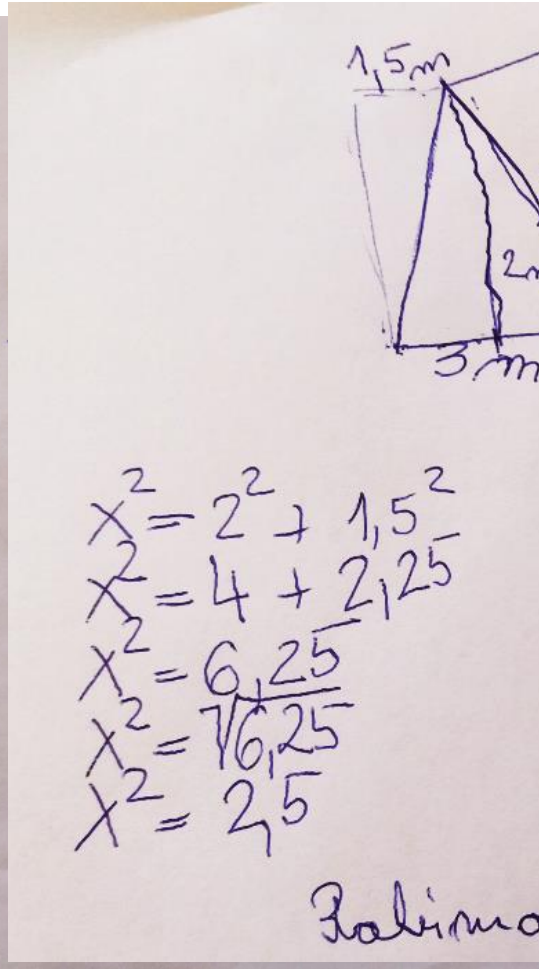 1,5m
2m
3m
x² = 2² + 1,5²
x² = 4 + 2,25
x² = 6,25
x² = √6,25
x² = 2,5